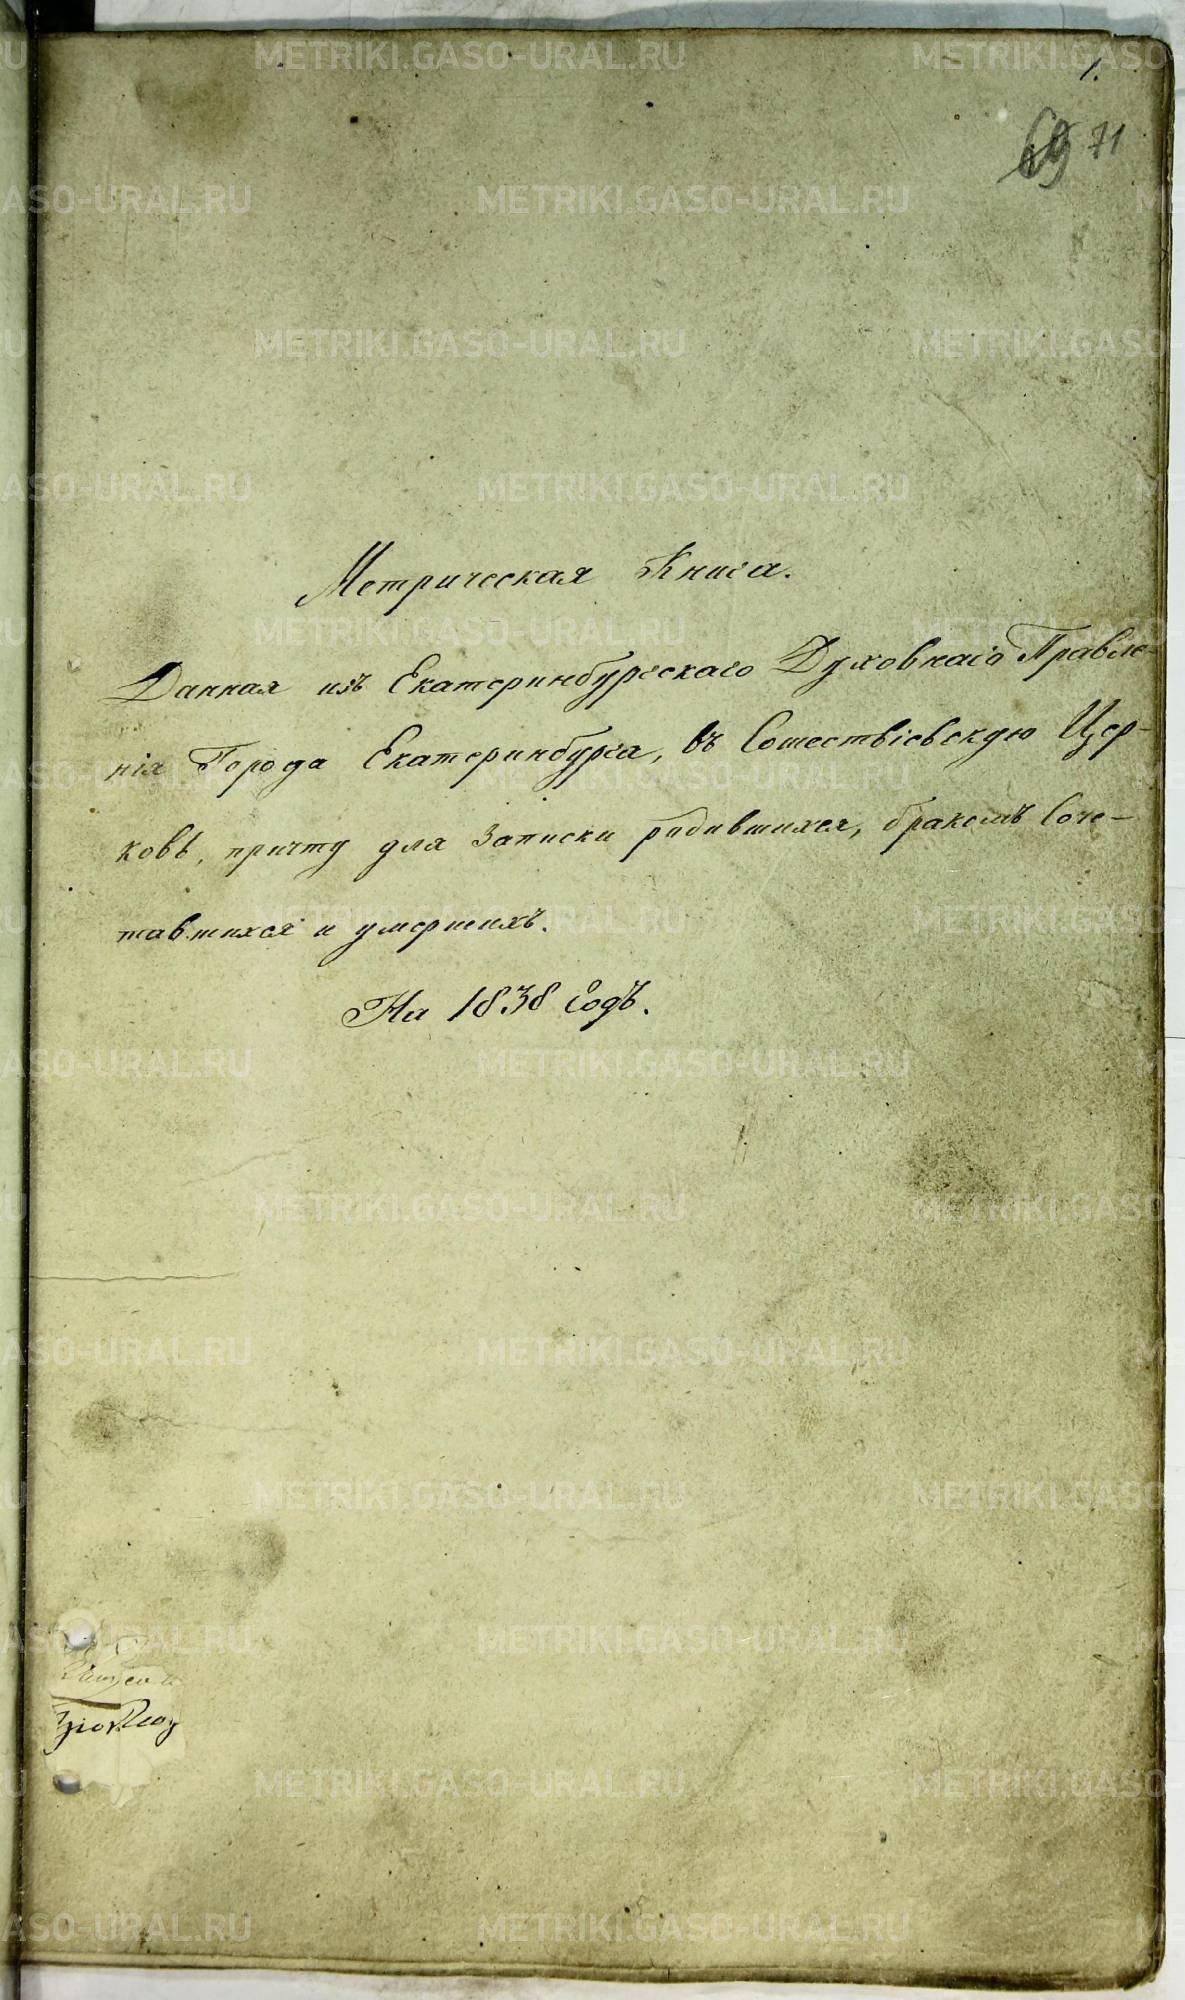 1.
69 71
Метрическая Книга.
Данная изъ Екатеринбургскаго Духовнаго Правле-
нія Города Екатеринбурга, въ Сошествіевскую Цер-
ковь, причту для Записки родившихся, бракомъ Соче-
тавшихся и умершихъ.
На 1838 Годъ.
METRIKI.GASO-URAL.RU